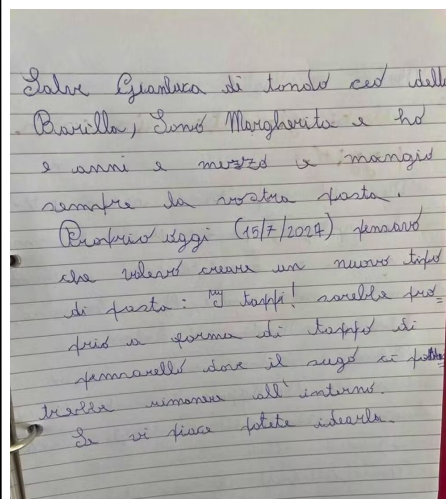 Salve Gianluca di tondo ceo dell
Barilla, Sono Margherita e ho
9 anni e mezzo e mangio
sempre la vostra pasta.
Proprio oggi (15/7/2024) pensavo
che volevo creare un nuovo tipo
di pasta: "I tappi! sarebbe pro=
prio a forma di tappo di
pennarello dove il sugo ci po
trebbe rimanere all'interno.
Se vi piace potete idearla.